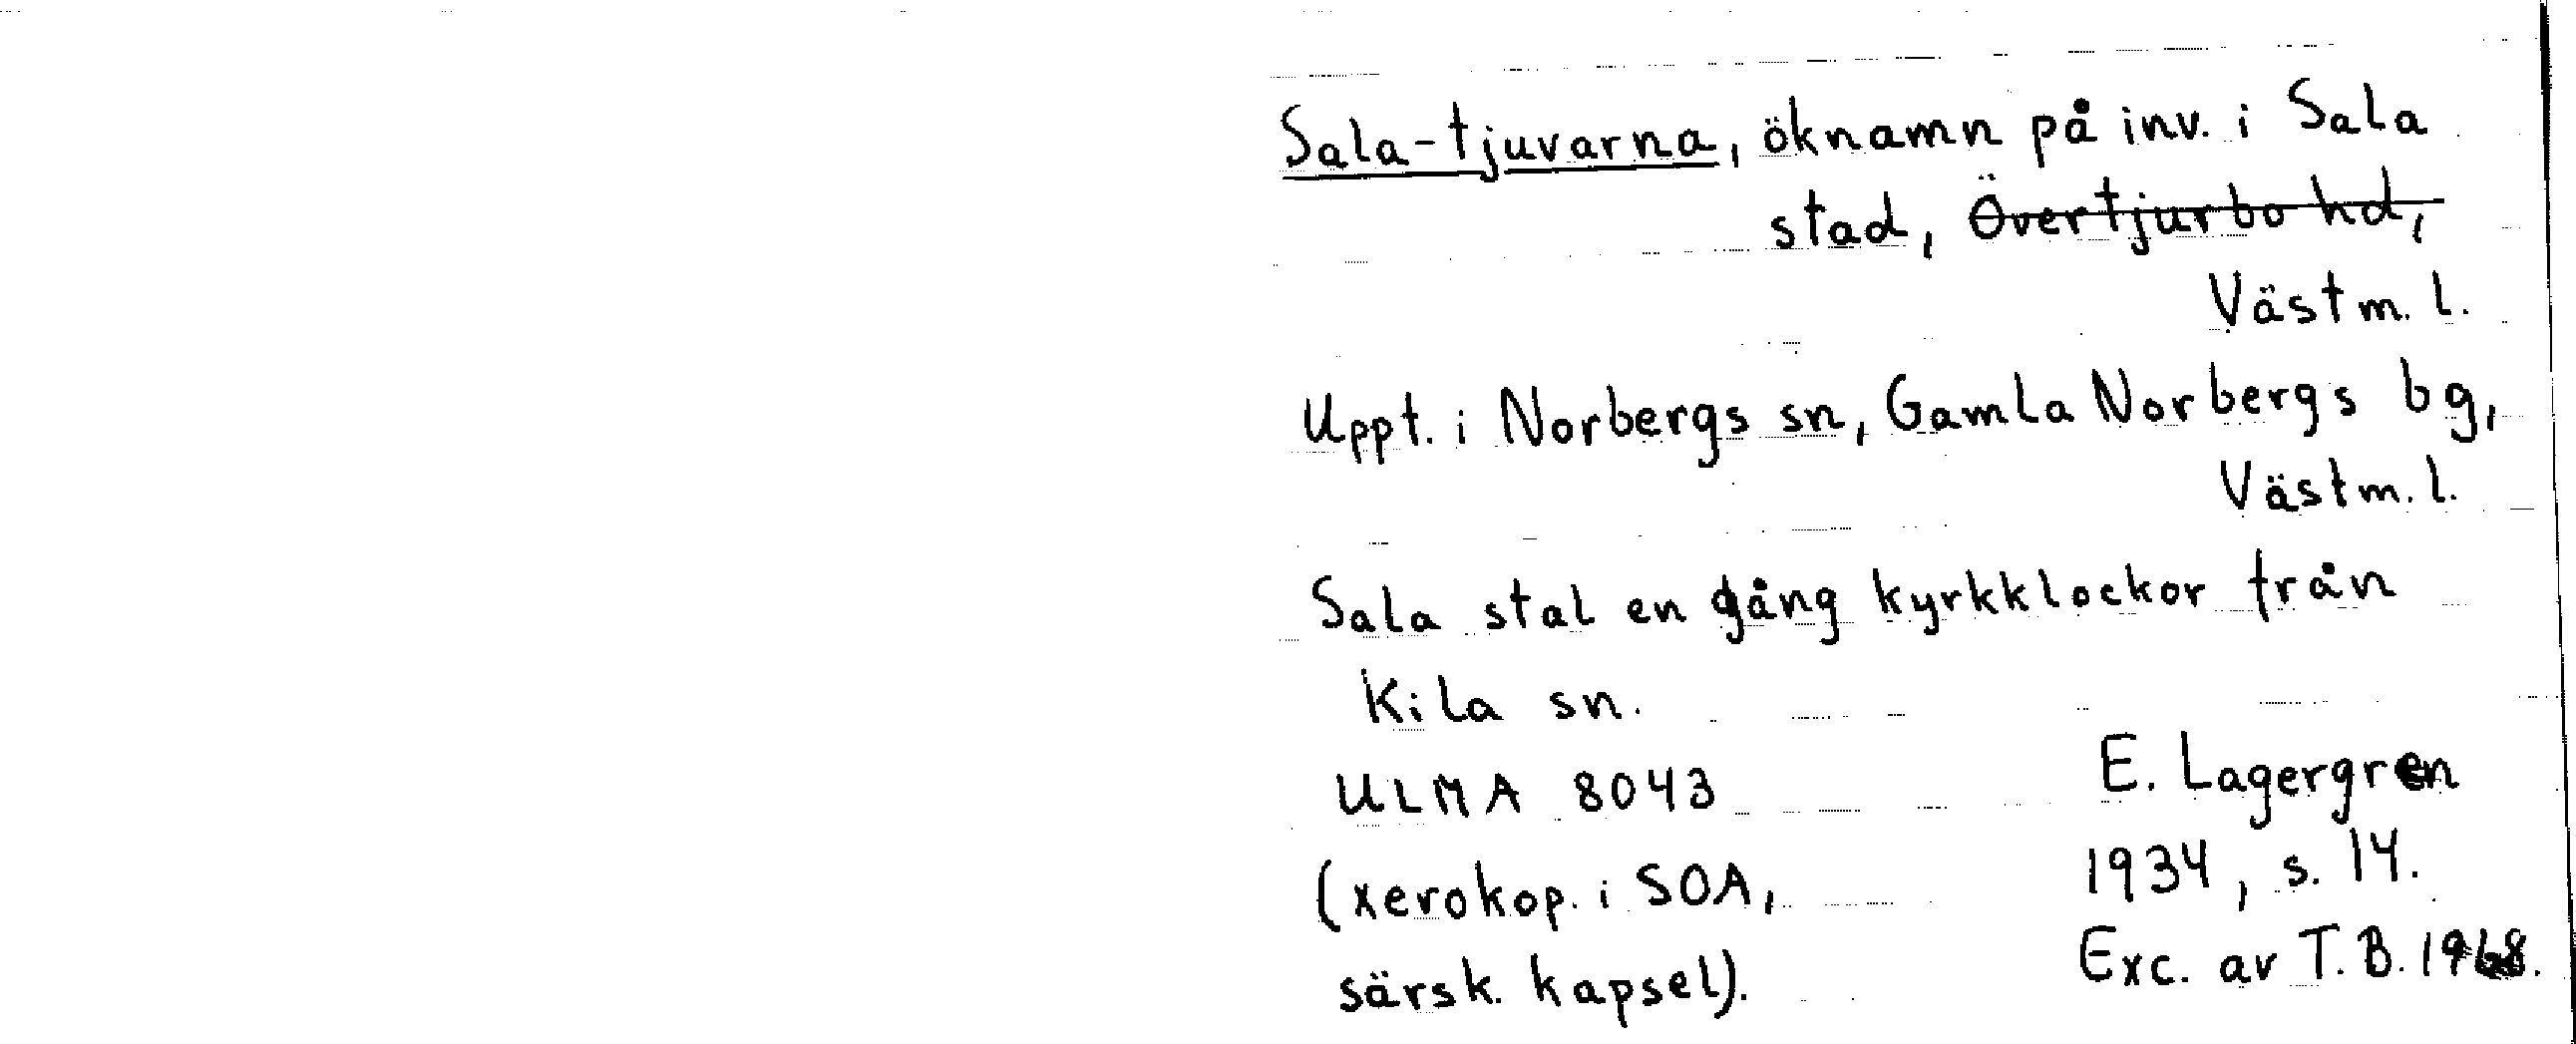 Sala-tjuvarna, öknamn på inv. i Sala
stad, Övertjurbo hd,
Västm. l.
Uppt. i Norbergs sn, Gamla Norbergs bg,
Västm. l.
Sala stal en gång kyrkklockor från
Kila sn.
ULMA 8043
(xerokop. i SOA,
särsk. kapsel).
E. Lagergren
1934, s. 14.
Exc. av T. B. 1968.